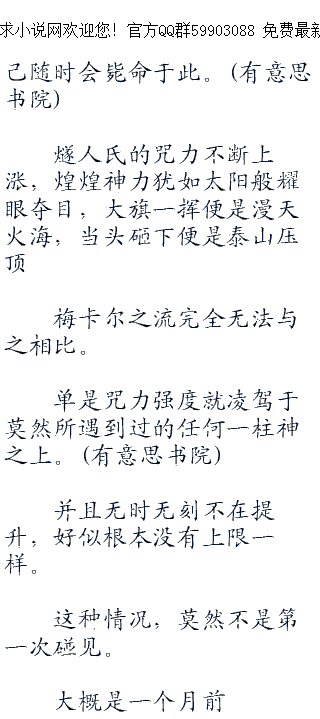 求小说网欢迎您! 官方QQ群59903088 免费最新
己随时会毙命于此。(有意思
书院)
燧人氏的咒力不断上
涨，煌煌神力犹如太阳般耀
眼夺目，大旗一挥便是漫天
火海，当头砸下便是泰山压
顶
梅卡尔之流完全无法与
之相比。
单是咒力强度就凌驾于
莫然所遇到过的任何一柱神
之上。(有意思书院)
并且无时无刻不在提
升，好似根本没有上限一
样。
这种情况，莫然不是第
一次碰见。
大概是一个月前